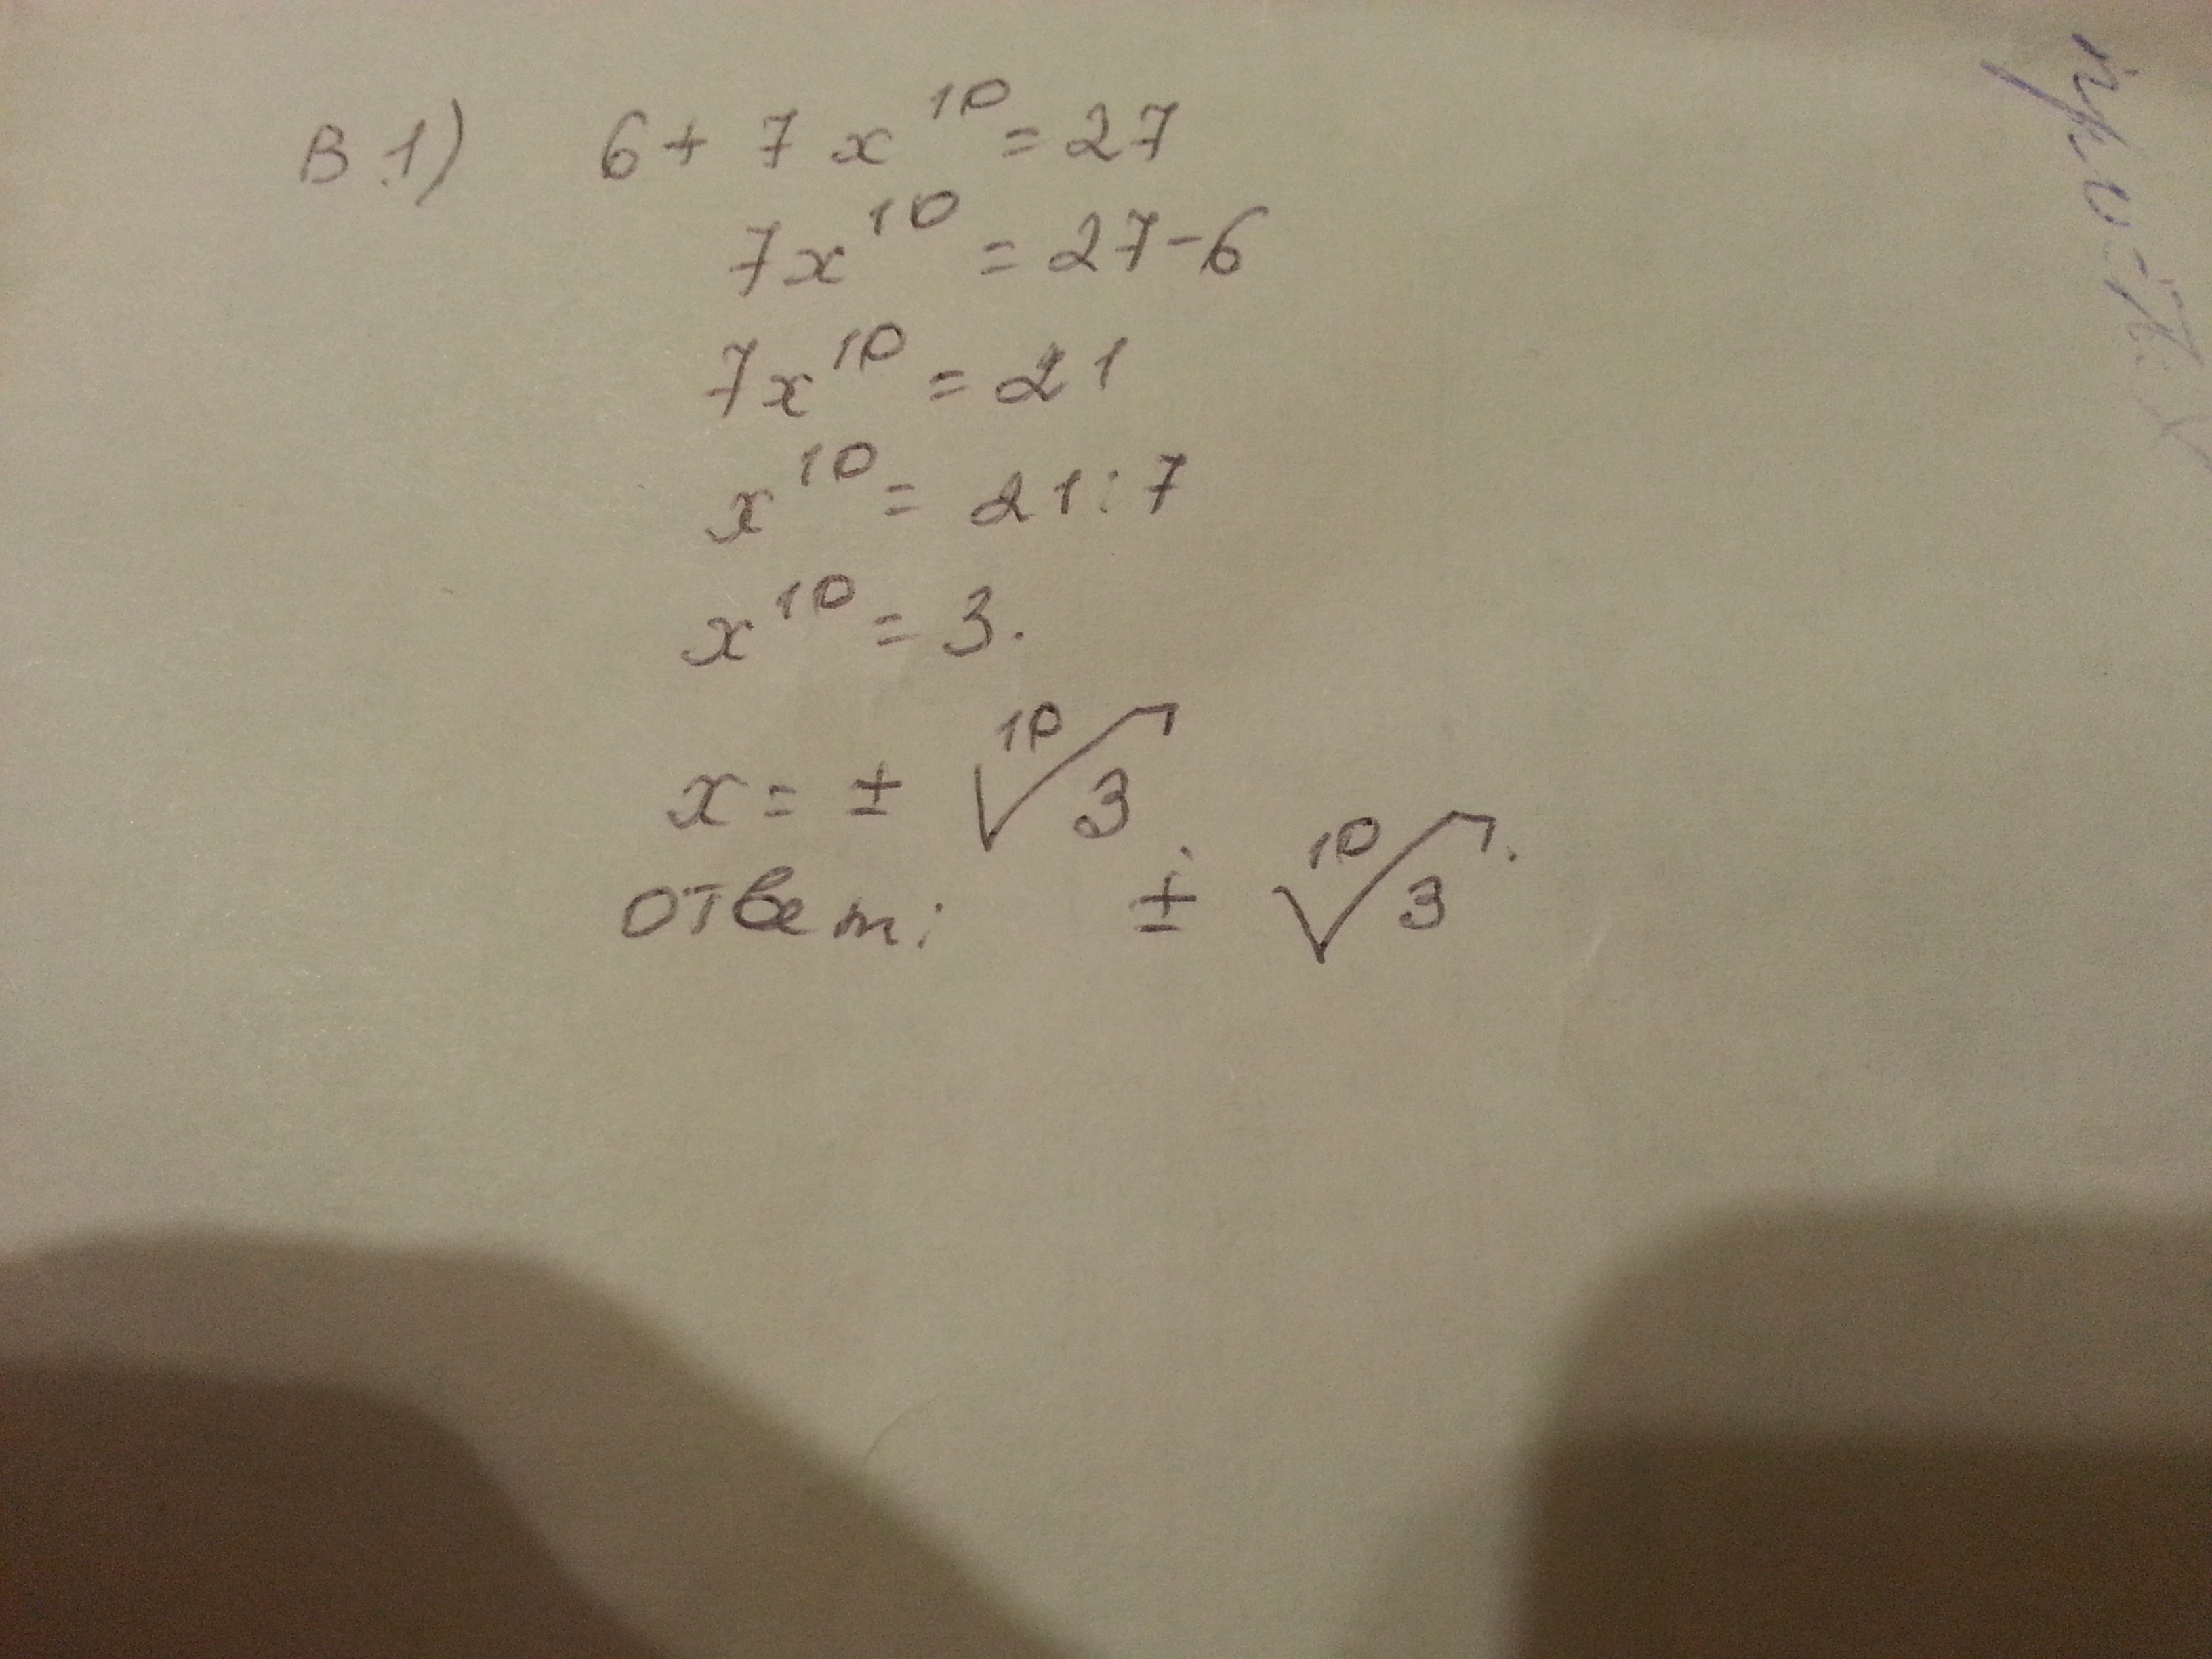 В.1) 6 + 7x¹⁰ = 27
7x¹⁰ = 27 - 6
7x¹⁰ = 21
x¹⁰ = 21 : 7
x¹⁰ = 3.
x = ± ¹⁰√3.
Ответ: ± ¹⁰√3.